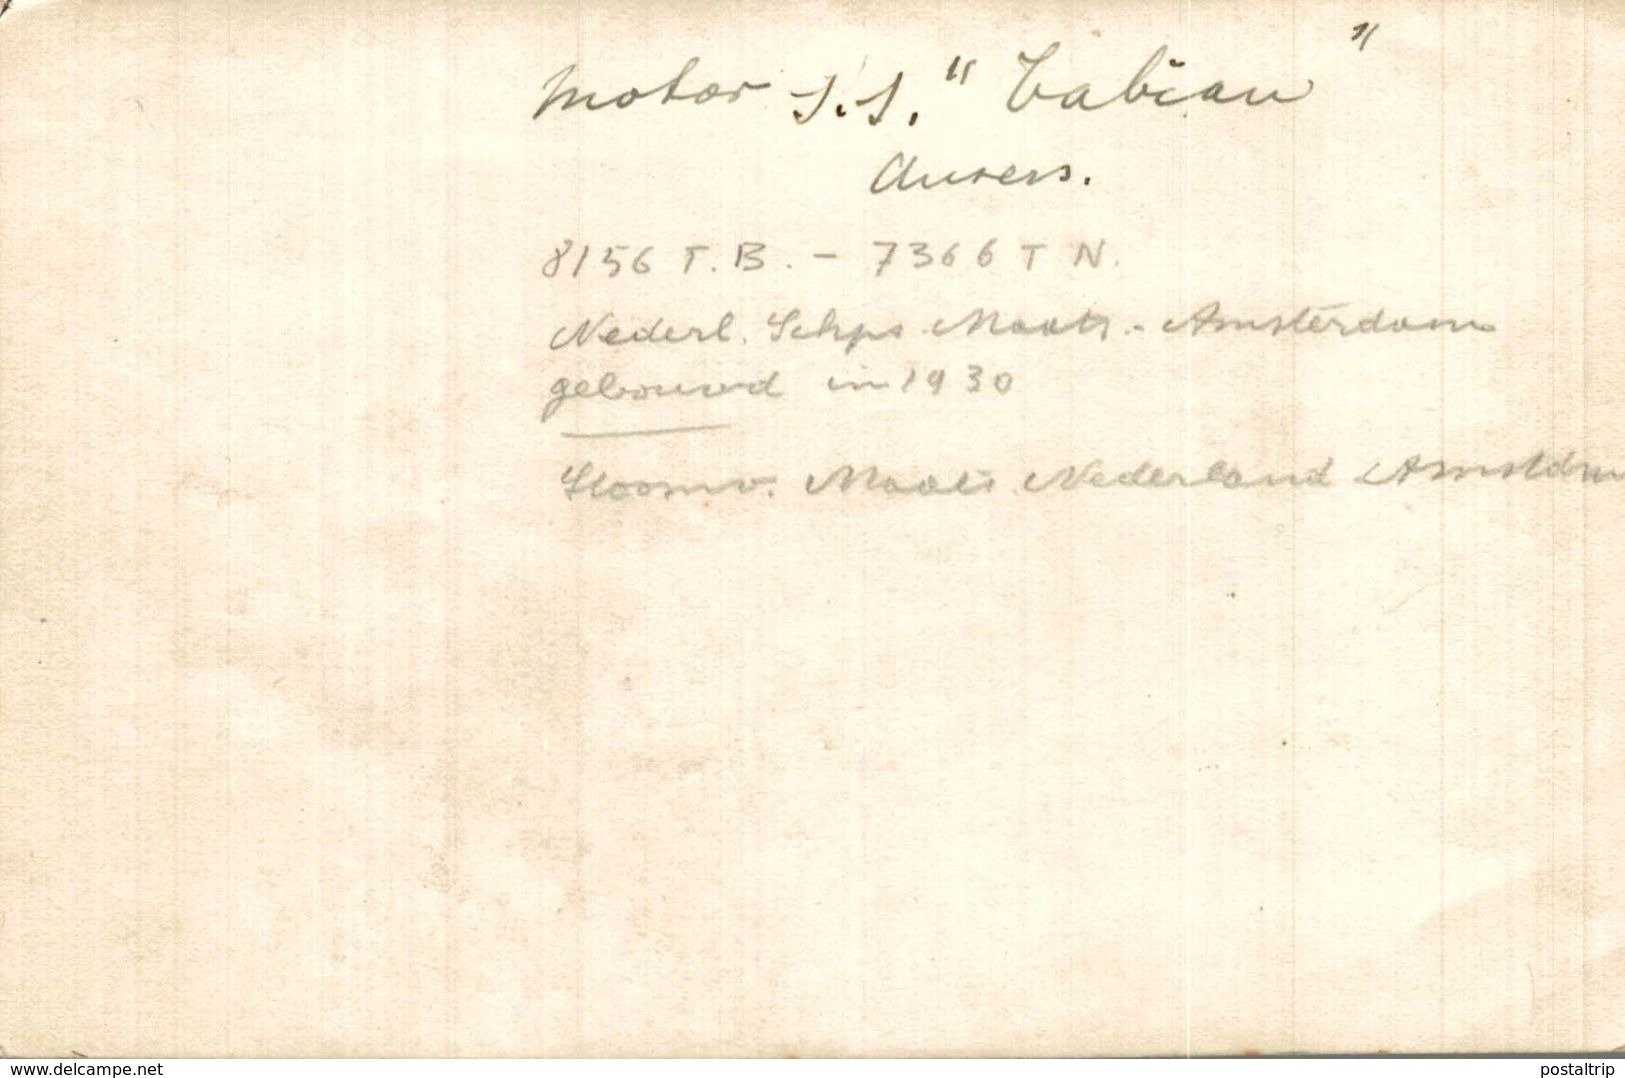 Motor S.S. "Tabian"
Anvers.
8156 T.B. - 7366 T N.
Nederl. Schps. Maats. - Amsterdam
gebouwd in 1930
Stoomv. Maats Nederland Amstdm
delcampe.net
postaltrip